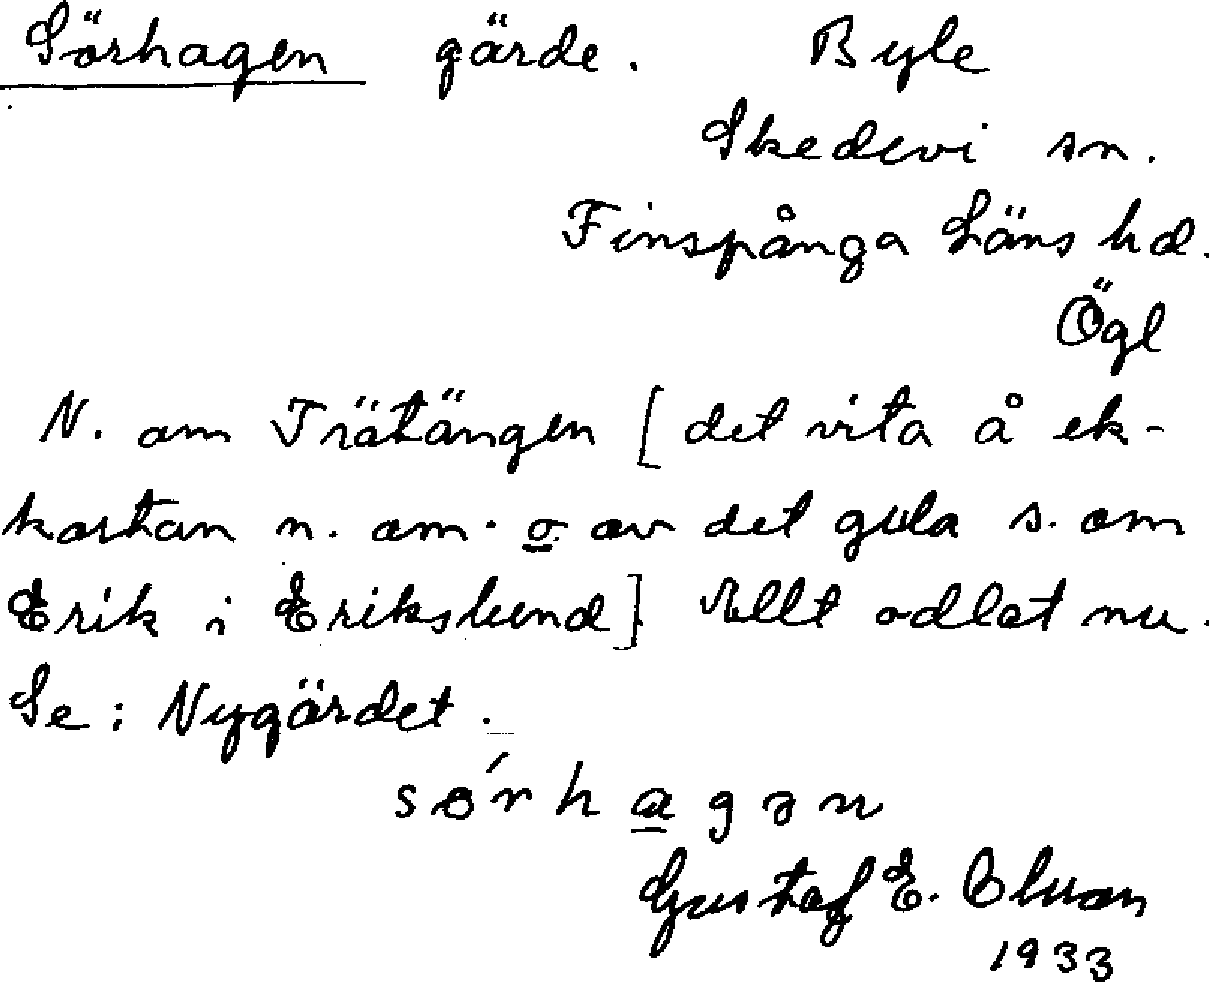 Sörhagen gärde. Byle
Skedevi sn.
Finspånga Läns hd.
Ögl
N. om Trätängen [det vita å ek-
kartan n. om. o. av det gula s. om
Erik i Erikslund] Allt odlat nu.
Se: Nygärdet.
sɵ́rhagən
Gustaf E.
1933